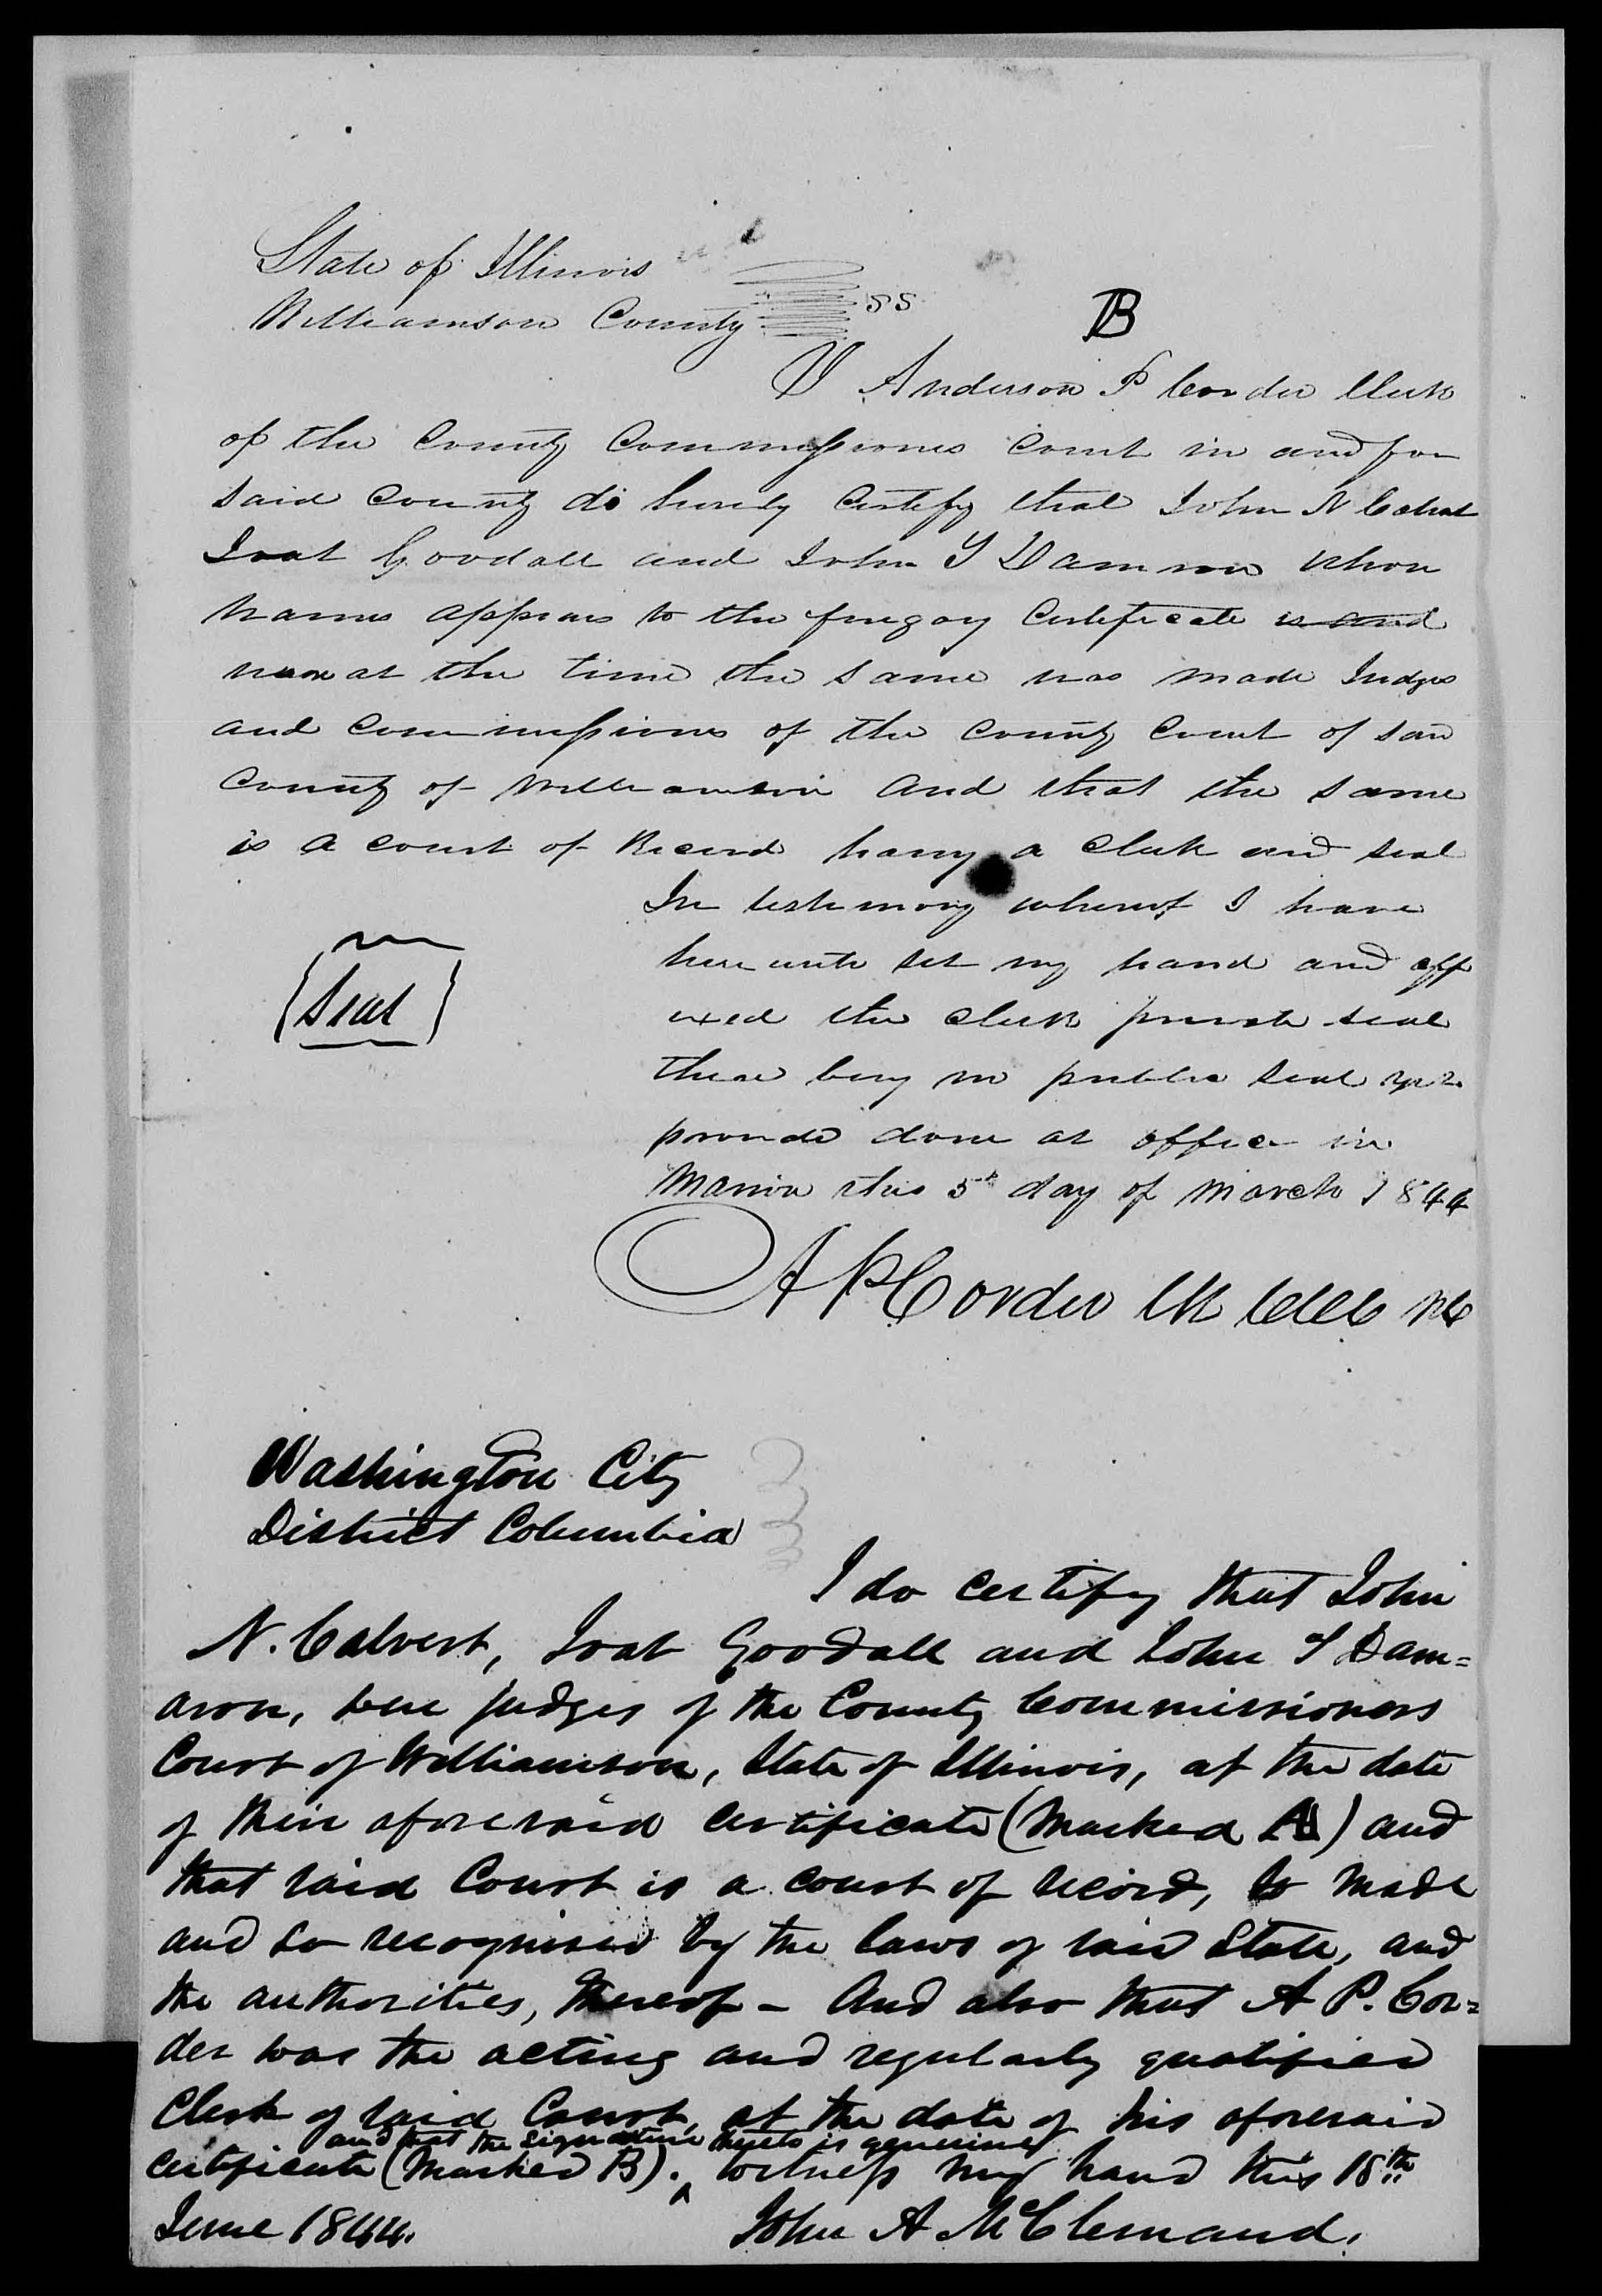 State of Illinois
Williamson County SS
B
I Anderson P Corder Clerk
of the County Commissiones Court in and for
said County do hereby Certify that John N Calvert
Joab Goodall and John T Damron whos
names appears to the foregoing Certificate is and
was at the time the same was made Judges
and Commissiones of the County Court of said
County of Williamson and that the same
is a court of Record having a Clerk and seal
In testimony whereof I have
hereunto set my hand and aff
ixed the Clerk private seal
there being no public seal yet
provided done at office in
Marion this 5th day of March 1844
Seal
A P Corder Clk CCC WC
Washington City
District Columbia
I do certify that John
N. Calvert, Joab Goodall and John T Dam=
aron, were Judges of the County Commissioners
Court of Williamson, State of Illinois, at the date
of their aforesaid certificate (marked A) and
that said Court is a court of record, so made
and so recognised by the laws of said State, and
the authorities, thereof - And also that A P. Cor=
der was the acting and regularly qualified
Clerk of said Court, at the date of his aforesaid
and that the signature thereto is genuine
certificate (marked B). ^ Witness my hand this 18th
June 1844. John A McClernand.